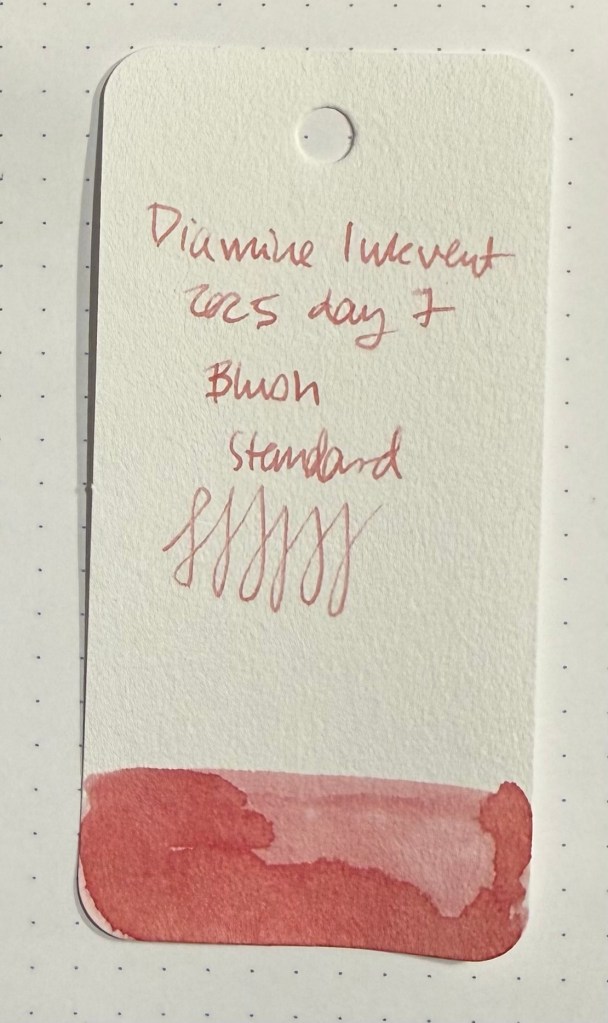 Diamine Inkvent
2025 day 7
Blush
Standard